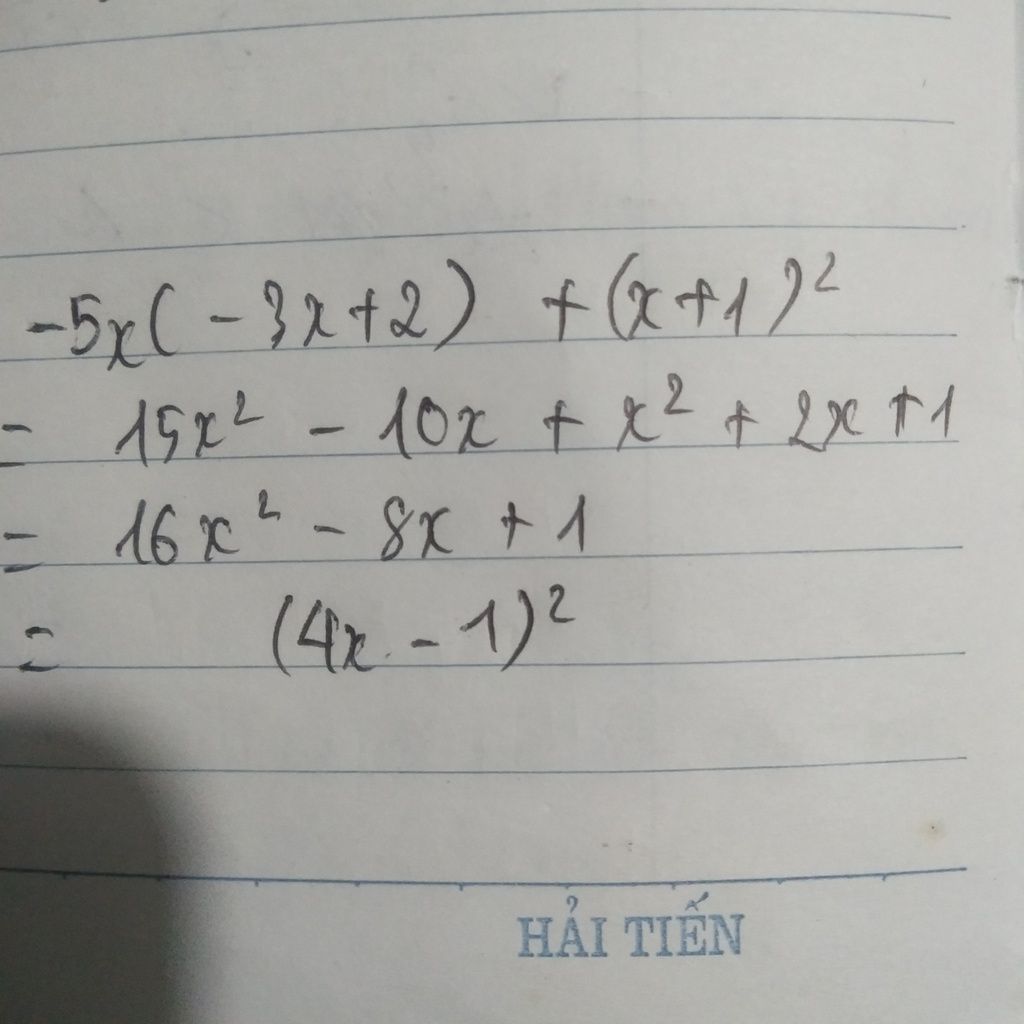 -5x(-3x+2) +(x+1)²
= 15x² - 10x + x² + 2x + 1
= 16x² - 8x + 1
= (4x - 1)²
HẢI TIẾN